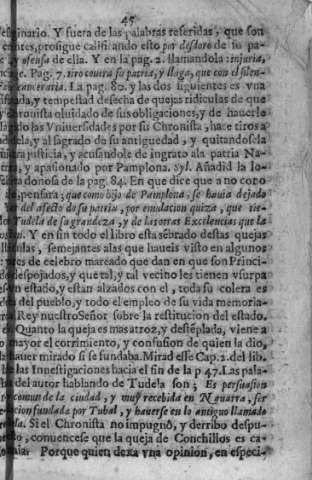 45
ginario. Y fuera de las palabras referidas, que son
prosigue calificando esto por desdoro de su pa-
y ofensa de ella. Y en la pag. 2. llamandola injuria,
Pag. 7. tiro contra su patria, y llaga, que con el silen-
La pag. 80. y las dos siguientes es vna
y tempestad deshecha de quejas ridiculas de que
Chronista oluidado de sus obligaciones, y de hauerle
las Vniuersidades por su Chronista, haze tiros a
y al sagrado de su antiguedad, y quitandosela
justicia, y acusandole de ingrato a la patria Na-
y apasionado por Pamplona. Añadid la
donosa de la pag. 84. En que dice que a no cono-
pensara; que como hijo de Pamplona, se hauia dejado
del afecto de su patria, por emulacion quiza, que tie-
Tudela de su grandeza, y de las otras Excelencias que la
Y en fin todo el libro esta sēbrado destas quejas
semejantes a las que haueis visto en algunos
de celebro mareado que dan en que son Princi-
despojados, y que tal, y tal vecino les tienen vsurpa
estado, y estan alzados con el, toda su colera es
del pueblo, y todo el empleo de su vida memoria-
Rey nuestro Señor sobre la restitucion del estado.
Quanto la queja es mas atroz, y destēplada, viene a
mayor el corrimiento, y confusion de quien la dio,
hauer mirado si se fundaba. Mirad esse Cap. 2. del lib.
las Inuestigaciones hacia el fin de la p 47. Las pala-
del autor hablando de Tudela son; Es persuasion
comun de la ciudad, y muy recebida en Nauarra, ser
fundada por Tubal, y hauerse en lo antiguo llamado
Si el Chronista no impugnó, y derribo despu-
conuencese que la queja de Conchillos es ca-
Porque quien dexa vna opinion, en especi-